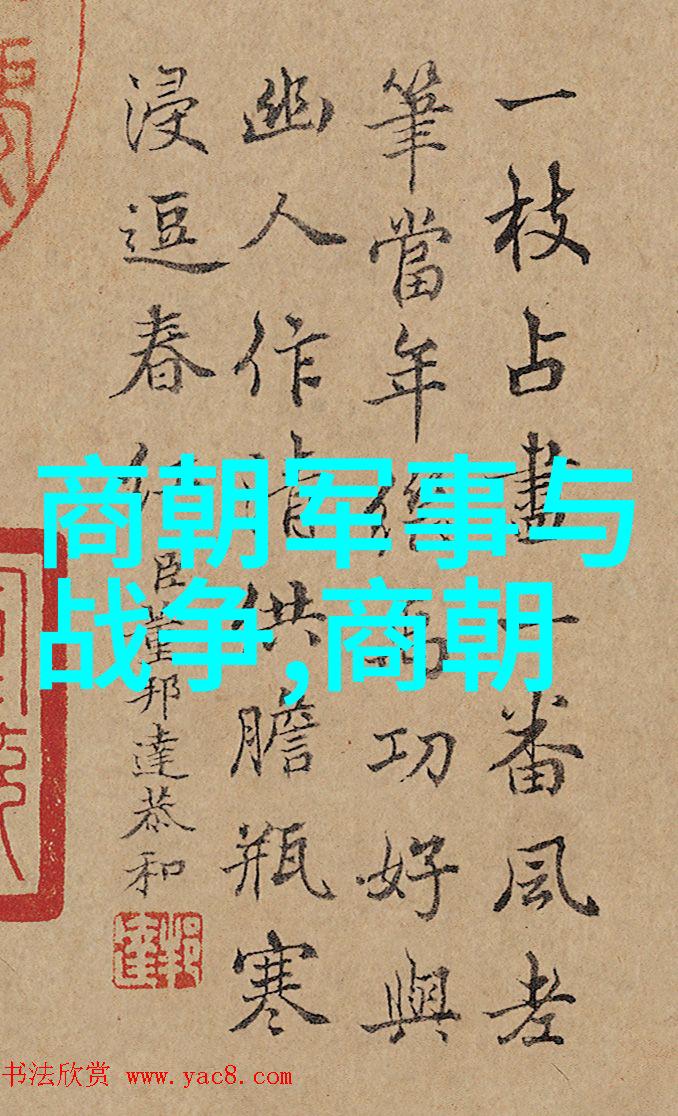 一枝占一番風老
筆當年功好與
幽人作清供膽瓶寒
浸逗春
臣董邦達恭和
邦達
商朝军事与
战争,商朝
书法欣赏 www.yac8.com